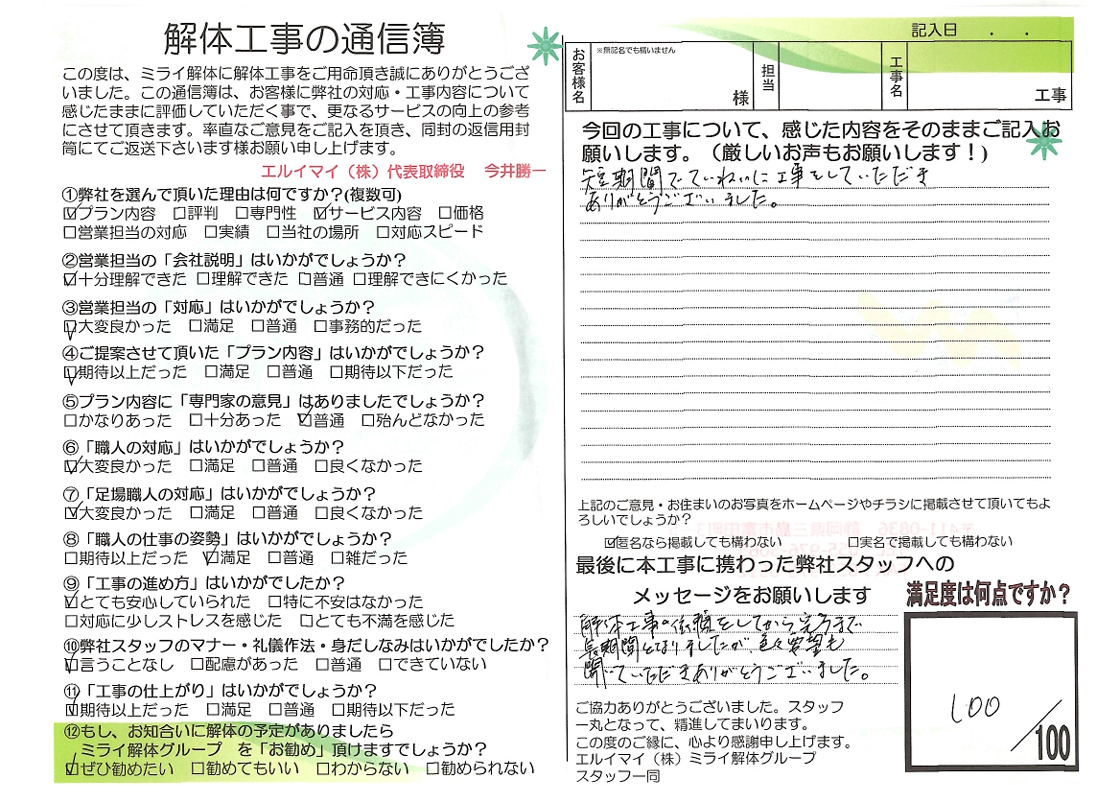 解体工事の通信簿
この度は、ミライ解体に解体工事をご用命頂き誠にありがとうござ
いました。この通信簿は、お客様に弊社の対応・工事内容について
感じたままに評価していただく事で、更なるサービスの向上の参考
にさせて頂きます。率直なご意見をご記入を頂き、同封の返信用封
筒にてご返送下さいます様お願い申し上げます。
エルイマイ（株）代表取締役　今井勝一
①弊社を選んで頂いた理由は何ですか？(複数可)
☑プラン内容　□評判　□専門性　☑サービス内容　□価格
□営業担当の対応　□実績　□当社の場所　□対応スピード
②営業担当の「会社説明」はいかがでしょうか？
☑十分理解できた　□理解できた　□普通　□理解できにくかった
③営業担当の「対応」はいかがでしょうか？
☑大変良かった　□満足　□普通　□事務的だった
④ご提案させて頂いた「プラン内容」はいかがでしょうか？
☑期待以上だった　□満足　□普通　□期待以下だった
⑤プラン内容に「専門家の意見」はありましたでしょうか？
□かなりあった　□十分あった　☑普通　□殆んどなかった
⑥「職人の対応」はいかがでしょうか？
☑大変良かった　□満足　□普通　□良くなかった
⑦「足場職人の対応」はいかがでしょうか？
☑大変良かった　□満足　□普通　□良くなかった
⑧「職人の仕事の姿勢」はいかがでしょうか？
□期待以上だった　☑満足　□普通　□雑だった
⑨「工事の進め方」はいかがでしたか？
☑とても安心していられた　□特に不安はなかった
□対応に少しストレスを感じた　□とても不満を感じた
⑩弊社スタッフのマナー・礼儀作法・身だしなみはいかがでしたか？
☑言うことなし　□配慮があった　□普通　□できていない
⑪「工事の仕上がり」はいかがでしょうか？
☑期待以上だった　□満足　□普通　□期待以下だった
⑫もし、お知合いに解体の予定がありましたら
ミライ解体グループ　を「お勧め」頂けますでしょうか？
☑ぜひ勧めたい　□勧めてもいい　□わからない　□勧められない
記入日　．　．
お客様名　※無記名でも構いません　様　担当　工事名　工事
今回の工事について、感じた内容をそのままご記入お
願いします。（厳しいお声もお願いします！）
短期間でていねいに工事をしていただき
ありがとうございました。
上記のご意見・お住まいのお写真をホームページやチラシに掲載させて頂いてもよ
ろしいでしょうか？
☑匿名なら掲載しても構わない　□実名で掲載しても構わない
最後に本工事に携わった弊社スタッフへの
メッセージをお願いします
解体工事の依頼をしてから完了まで
長期間となりましたが、色々要望も
聞いていただきありがとうございました。
ご協力ありがとうございました。スタッフ
一丸となって、精進してまいります。
この度のご縁に、心より感謝申し上げます。
エルイマイ（株）ミライ解体グループ
スタッフ一同
満足度は何点ですか？
100
/100